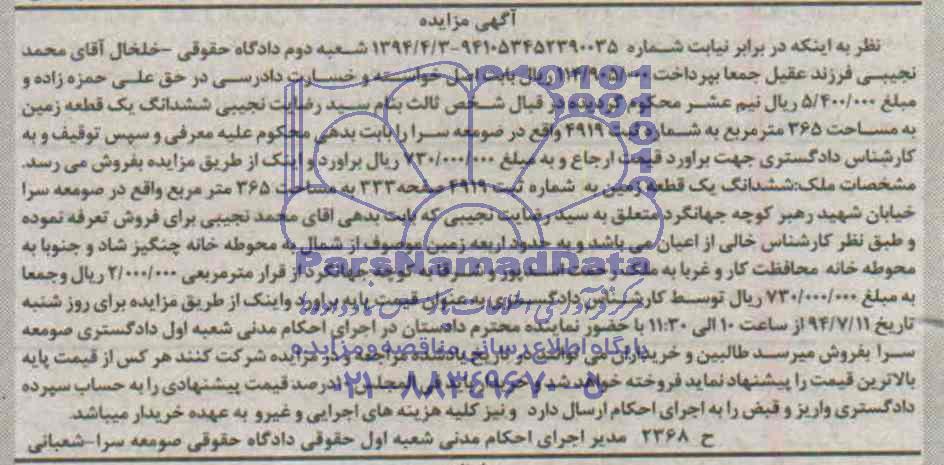 آگهی مزایده
نظر به اینکه در برابر نیابت شماره ۹۴۱۰۵۳۴۵۲۳۹۰۰۳۵-۱۳۹۴/۴/۳ شعبه دوم دادگاه حقوقی -خلخال آقای محمد
نجیبی فرزند عقیل جمعا بپرداخت ۱۱۴/۹۰۵/۰۰۰ ریال بابت اصل خواسته و خسارت دادرسی در حق علی حمزه زاده و
مبلغ ۵/۴۰۰/۰۰۰ ریال نیم عشر محکوم گردیده در قبال شخص ثالث بنام سید رضایت نجیبی ششدانگ یک قطعه زمین
به مساحت ۳۶۵ مترمربع به شماره ثبت ۴۹۱۹ واقع در صومعه سرا را بابت بدهی محکوم علیه معرفی و سپس توقیف و به
کارشناس دادگستری جهت براورد قیمت ارجاع و به مبلغ ۷۳۰/۰۰۰/۰۰۰ ریال براورد و اینک از طریق مزایده بفروش می رسد.
مشخصات ملک:ششدانگ یک قطعه زمین به شماره ثبت ۴۹۱۹ صفحه ۳۳۳ به مساحت ۳۶۵ متر مربع واقع در صومعه سرا
خیابان شهید رهبر کوچه جهانگرد متعلق به سید رضایت نجیبی که بابت بدهی اقای محمد نجیبی برای فروش تعرفه نموده
و طبق نظر کارشناس خالی از اعیان می باشد و به حدود اربعه زمین موصوف از شمال به محوطه خانه چنگیز شاد و جنوبا به
محوطه خانه محافظت کار و غربا به ملک رحمت اسدپور و شرقا به کوچه جهانگرد از قرار مترمربعی ۲/۰۰۰/۰۰۰ ریال وجمعا
به مبلغ ۷۳۰/۰۰۰/۰۰۰ ریال توسط کارشناس دادگستری به عنوان قیمت پایه براورد واینک از طریق مزایده برای روز شنبه
تاریخ ۹۴/۷/۱۱ از ساعت ۱۰ الی ۱۱:۳۰ با حضور نماینده محترم دادستان در اجرای احکام مدنی شعبه اول دادگستری صومعه
سرا بفروش میرسد طالبین و خریداران می توانند در تاریخ یادشده مراجعه و در مزایده شرکت کنند هر کس از قیمت پایه
بالاترین قیمت را پیشنهاد نماید فروخته خواهد شد و خریدار باید فی المجلس ۱۰درصد قیمت پیشنهادی را به حساب سپرده
دادگستری واریز و قبض را به اجرای احکام ارسال دارد و نیز کلیه هزینه های اجرایی و غیرو به عهده خریدار میباشد.
ح ۲۳۶۸ مدیر اجرای احکام مدنی شعبه اول حقوقی دادگاه حقوقی صومعه سرا-شعبانی
ParsNamadData
پایگاه اطلاع رسانی مناقصه و مزایده
۰۲۱-۸۸۳۴۹۶۷۰-۵